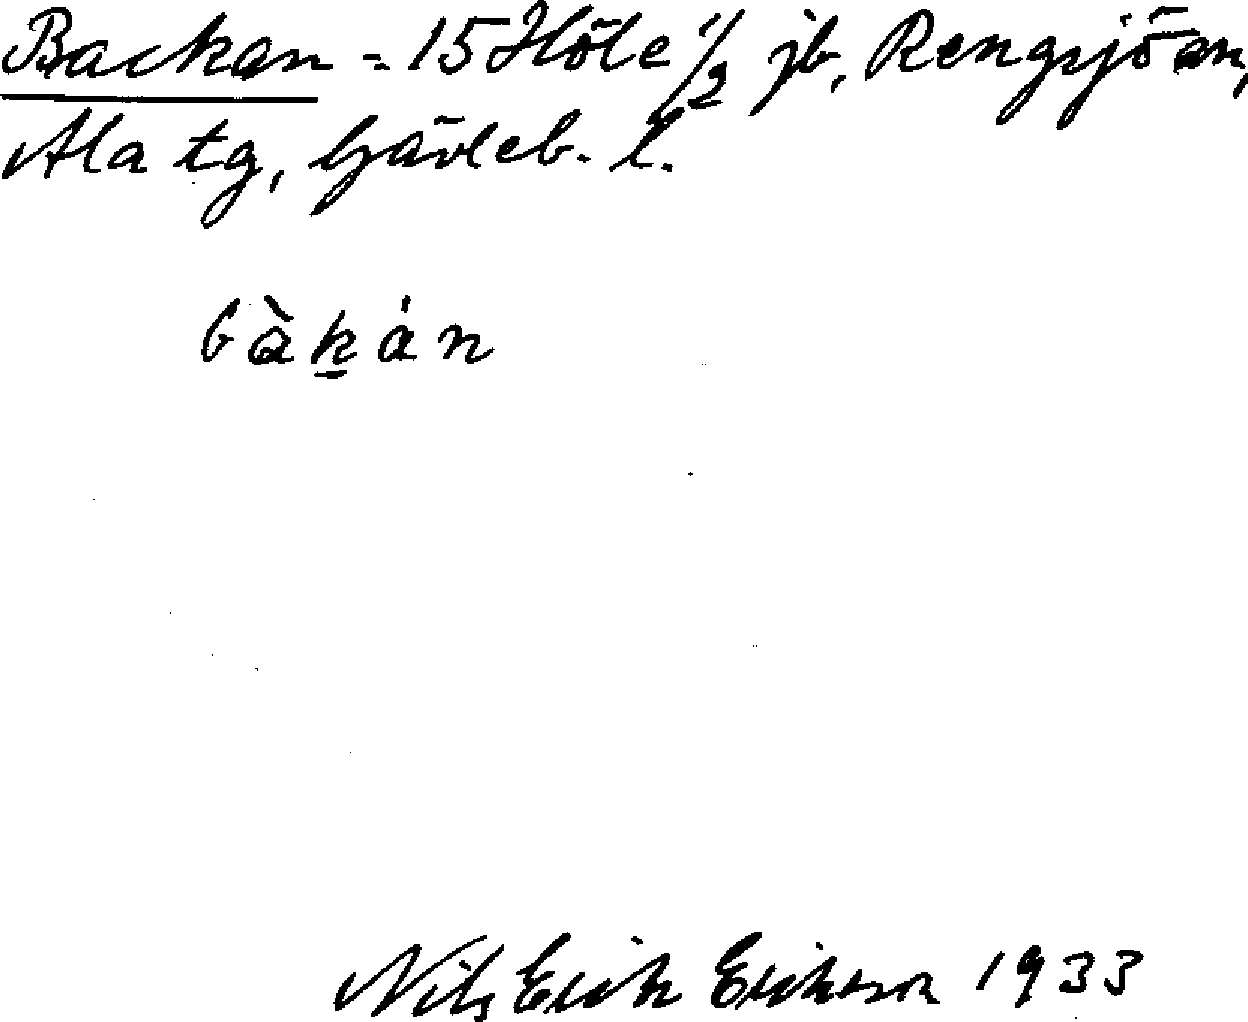 Backan = 15 Höle 1/2 jb, Rengsjö sn,
Ala tg, Gävleb. l.
bàk̲án
Nils Erik Erikson 1933